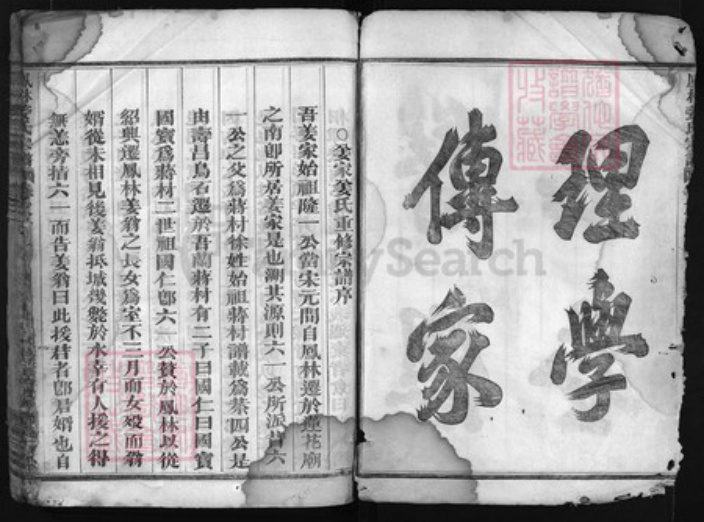 理學
傳家
○姜家姜氏重修宗譜序
吾姜家始祖隆一公當宋元間自鳳林遷於蓮花廟
之南卽所居姜家是也溯其源則六一公所派昔六
一公之父爲蔣材徐姓始祖蔣材譜載爲榮四公是
由壽昌烏石遷於吾蘭蔣村有二子曰國仁曰國寶
國寶爲蔣材二世祖國仁卽六一公贅於鳳林以從
紹興遷鳳林姜翁之長女爲室不三月而女歿而翁
婿從未相見後姜翁抵城幾斃於水幸有人援之得
無恙旁指六一而告姜翁曰此援君者卽君婿也自
FamilySearch